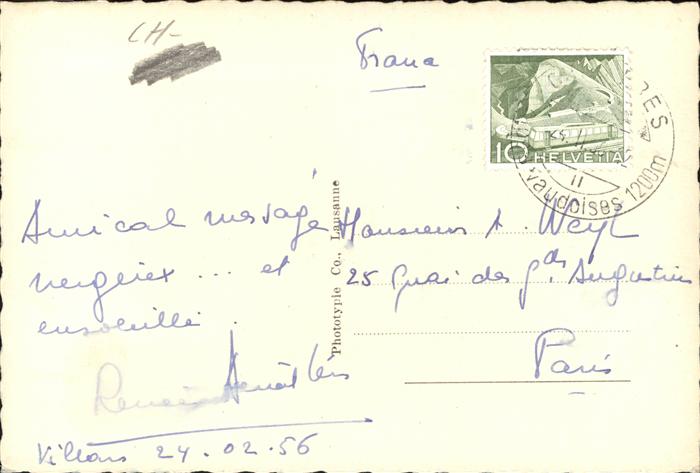 CH-
France
10 HELVETIA
vaudoises 1200m
II
Amical message
neigeux ... et
ensoleillé.
Villars 24.02.56
Phototypie Co., Lausanne
Monsieur A. Weyl
25 Quai des gds. Augustins
Paris